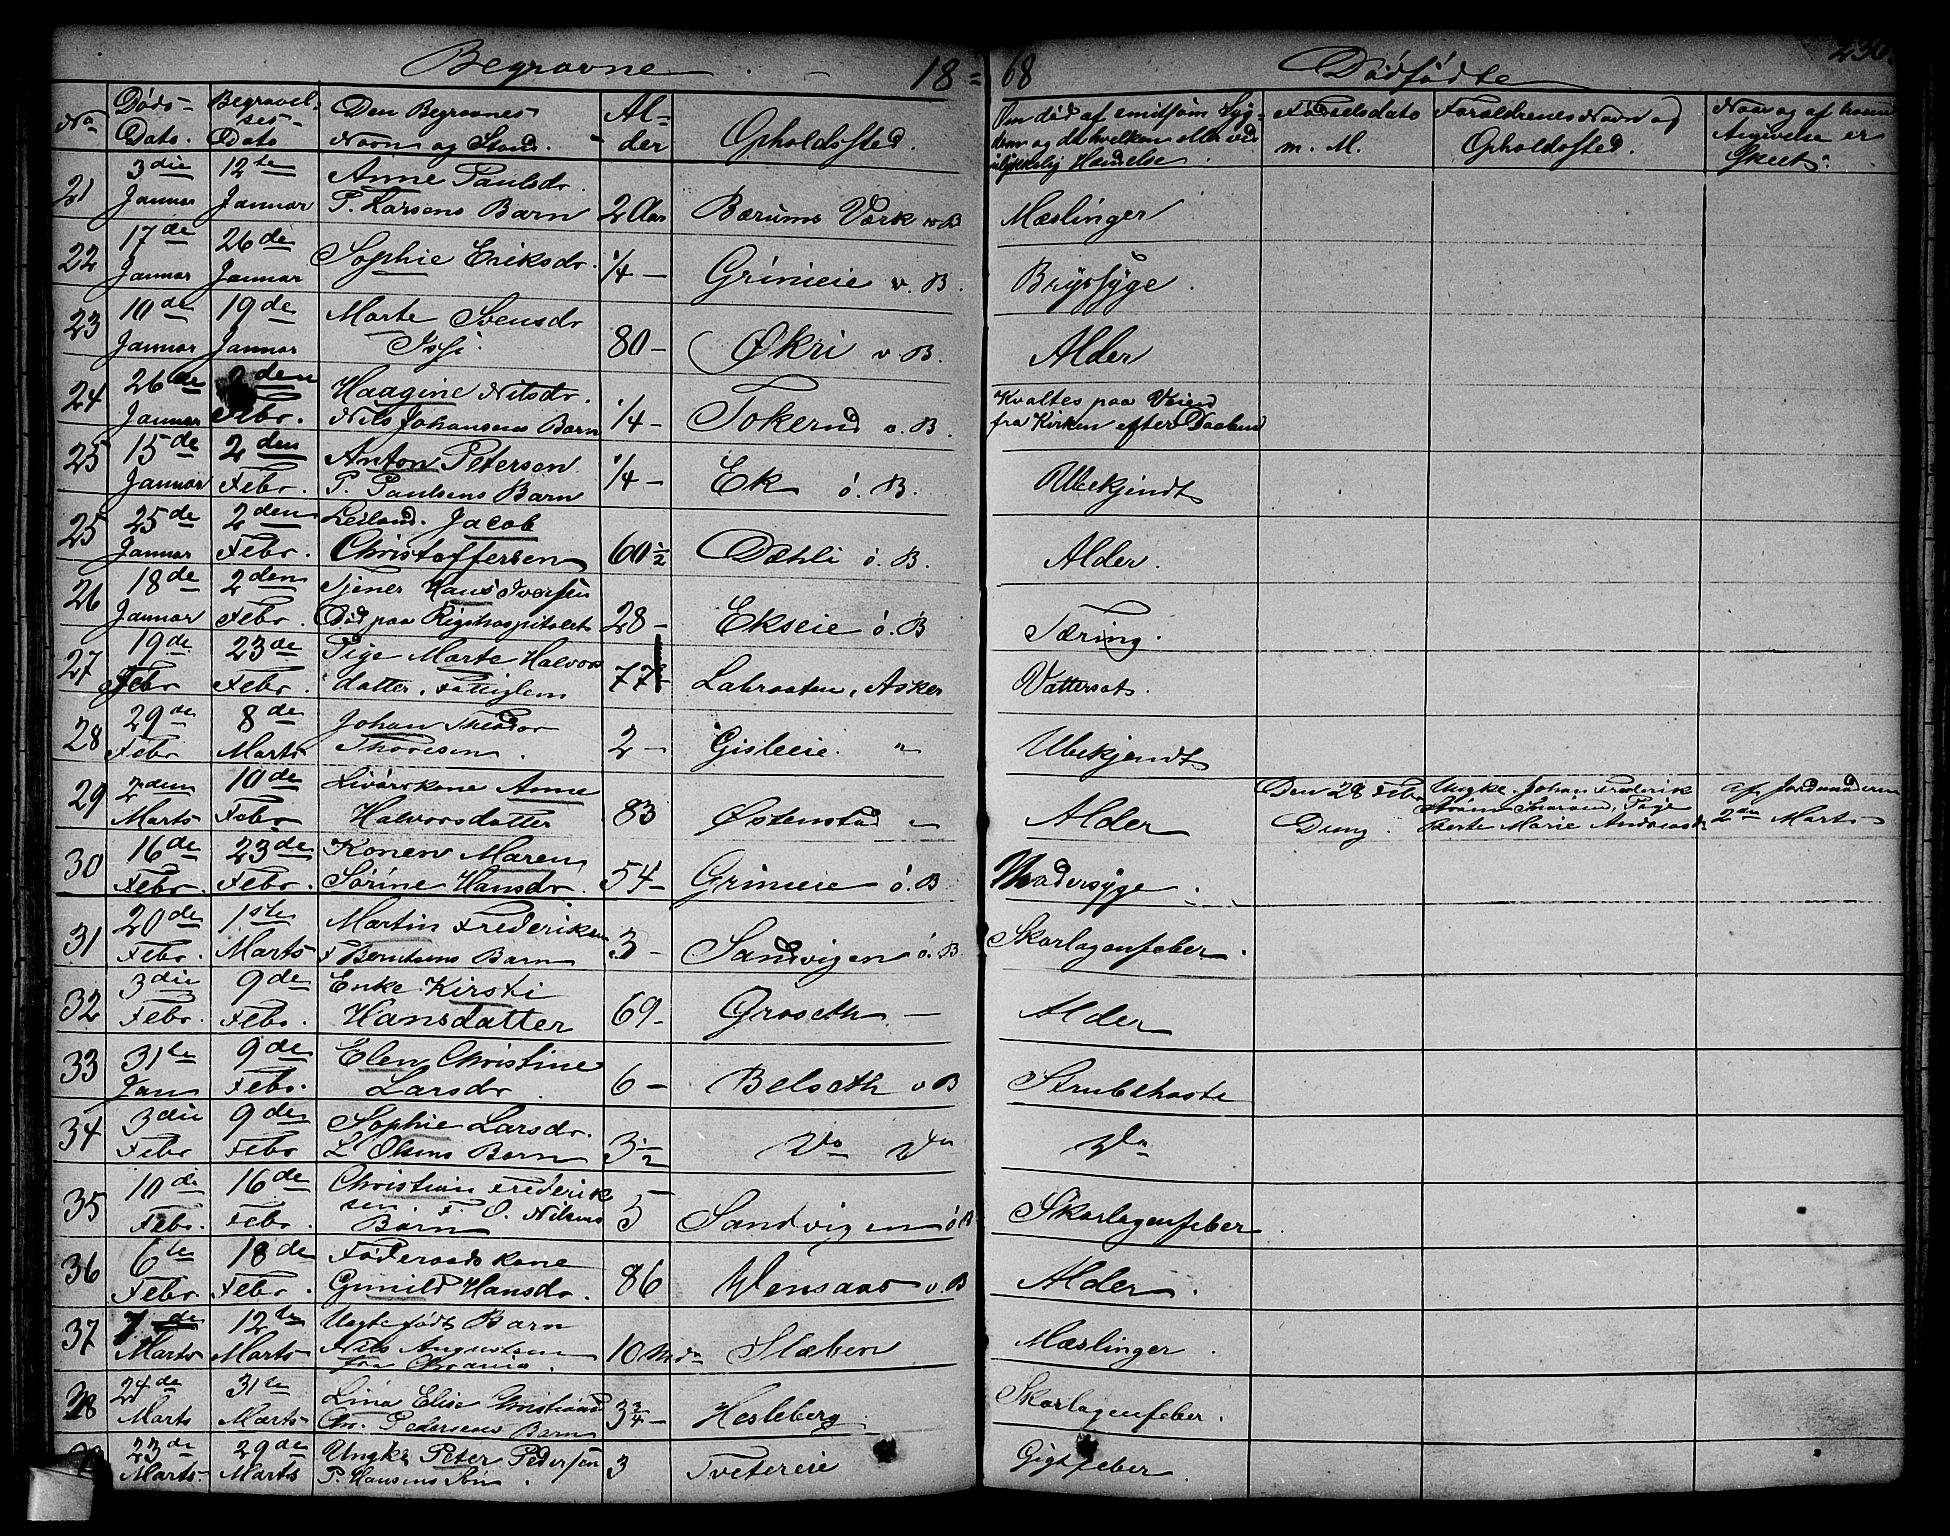 Begravne 18=68 Dødfødte 230.
No Døds-Dato. Begravelses-Dato Den Begravnes Navn og Stand. Alder Opholdssted. Om død af smitsom Sygdom og da hvilken eller ved ulykkelig Hændelse. Fødselsdato m. M. Forældrenes Navn og Opholdssted. Naar og af hvem Angivelse er Skeet.
21 3die Januar 12te Januar Anne Paulsdr. P. Larsens Barn 2 Aar Bærums Værk v B Mæslinger
22 17de Januar 26de Januar Sophie Eriksdr. 1/4 - Grinieie v. B. Brystsyge.
23 10de Januar 19de Januar Marte Svensdr 80 - Økri v B. Alder
24 26de Januar 2den Febr. Haagine Nilsdr. Nils Johansens Barn 1/4 - Tokerud v. B. Kvaltes paa Veien fra Kirken efter Daaben
25 15de Januar 2den Febr. Anton Petersen P. Paulsens Barn 1/4 - Ek ö. B. Ubekjendt
25 25de Januar 2den Febr. Leiland. Jacob Christoffersen 60 1/2 Dæhli ö. B. Alder.
26 18de Januar 2den Febr. Tjener Hans Iversen Død paa Rigshospitalet 28 - Ekseie ö. B Tæring.
27 19de Febr 23de Febr. Pige Marte Halvorsdatter, Fattiglem 77 Labraaten, Asker Vattersot.
28 29de Febr 8de Marts Johan Theodor Thoresen. 2 - Gisleeie. " Ubekjendt
29 2den Marts 10de Febr Anne Halvorsdatter 83 Østenstad " Alder Den 28 Febr Dreng. Ungk. Johan Frederik Pige Berte Marie Andreasdr af Jordmoderen 2den Marts
30 16de Febr. 23de Febr. Konen Maren Sørine Hansdr. 54 - Grinieie ö. B Modersyge.
31 20de Febr. 1ste Marts Martin Frederiksen F Berntsens Barn 3 - Sandvigen ö. B Skarlagensfeber.
32 3die Febr. 9de Febr. Enke Kirsti Hansdatter 69 - Groseth - Alder
33 31te Jan 9de Febr. Elen Christine Larsdr. 6 - Belseth v B Strubehoste
34 3die Febr 9de Febr Sophie Larsdr. L. Olsens Barn 3 1/2 Do Do Do
35 10de Febr. 16de Febr. Christian Frederiksen F. O. Nilsens Barn 5 Sandvigen ö B Skarlagensfeber.
36 6te Febr 18de Febr. Føderaadskone Gunild Hansdr. 86 Wensaas v. B Alder.
37 7de Marts 12te Marts Uegtefødt Barn Nils Augustsen 10 Mdr Slæben Mæslinger.
38 24de Marts 31te Marts Lina Elise Christiansd Chr. Pedersens Barn 3 3/4 - Hesleberg Skarlagensfeber.
23de Marts 29de Marts Ungk. Peter Pedersen P. Hansens Søn. 3 Tvetereie Gigtfeber.